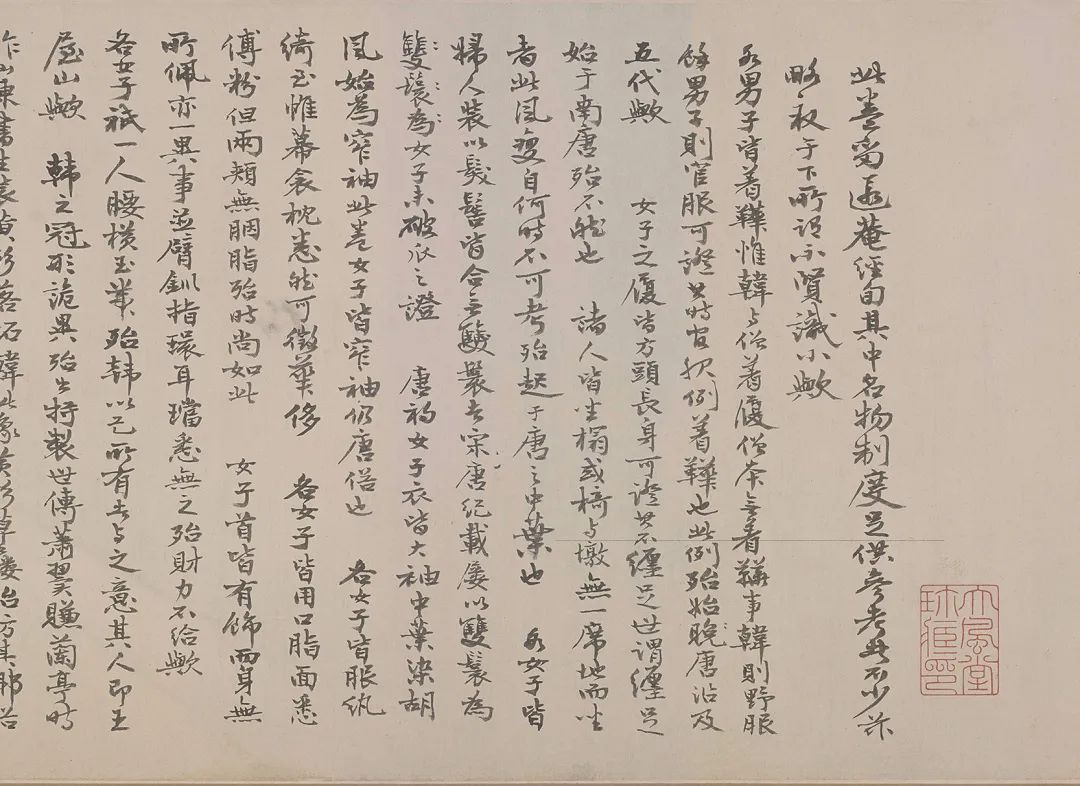 此卷留遐菴經旬其中名物制度足供參考者不少茲
略取于下所謂不賢識小歟
各男子皆着鞾惟韓与僧着履僧本無着鞾事韓則野服
餘男子則官服可證其時官服例着鞾也此例殆始晚唐沿及
五代歟　女子之履皆方頭長身可證其不纏足世謂纏足
始于南唐殆不然也　諸人皆坐榻或椅与墩無一席地而坐
者此風變自何時不可考殆起于唐之中葉也　各女子皆
婦人裝以髮髻皆合無雙鬟者宋唐紀載屢以雙鬟為
雙鬟為女子未破瓜之證　唐初女子衣皆大袖中葉染胡
風始為窄袖此卷女子皆窄袖仍唐俗也　各女子皆服紈
綺至帷幕衾枕悉然可徵華侈　各女子皆用口脂面悉
傅粉但兩頰無胭脂殆時尚如此　女子首皆有飾而身無
所佩亦一異事並臂釧指環耳璫悉無之殆財力不給歟
各女子祇一人腰横玉帶殆韓以己所有者与之意其人即王
屋山歟　韓之冠形詭異殆出特製世傳蕭翼賺蘭亭時
作山東書生裝黄衫
大風堂珍藏印